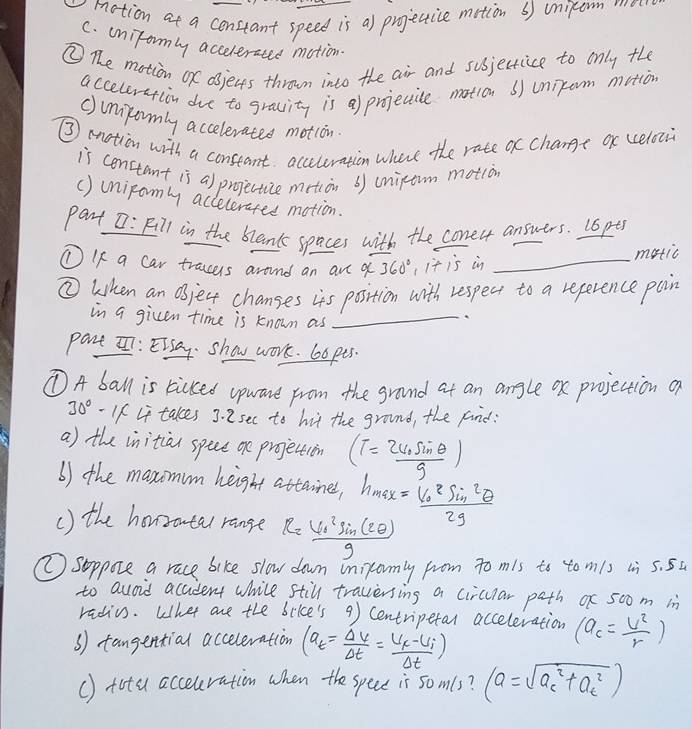 ① Motion at a constant speed is a) projectile motion b) uniform
c. uniformly accelerated motion.
② The motion of objects thrown into the air and subjective to only the
acceleration due to gravity is a) projectile motion b) uniform motion
c) uniformly accelerated motion.
③ motion with a constant acceleration where the rate of change of
is constant is a) projectile motion b) uniform motion
c) uniformly accelerated motion.
Part II: Fill in the blank spaces with the correct answers. 16 pts
① If a car travels around an arc of 360°, it is in __________
② When an object changes its position with respect to a reference
in a given time is known as __________.
part III: Essay. Show work. 60 pts.
① A ball is kicked upward from the ground at an angle of projection of
30° - If it takes 3.2 sec to hit the ground, the find:
a) the initial speed of projection (T = 2V₀ Sin θ / g)
b) the maximum height attained, hmax = V₀² Sin²θ / 2g
c) the horizontal range R = V₀² Sin(2θ) / g
② Suppose a race bike slow down uniformly from 70 m/s to 40 m/s in 5.5
to avoid accident while still traversing a circular path of 500 m in
radius. What are the bike's a) Centripetal acceleration (ac = V² / r)
b) tangential acceleration (at = ΔV / Δt = Vf - Vi / Δt)
c) total acceleration when the speed is 50 m/s? (a = √ac² + at²)